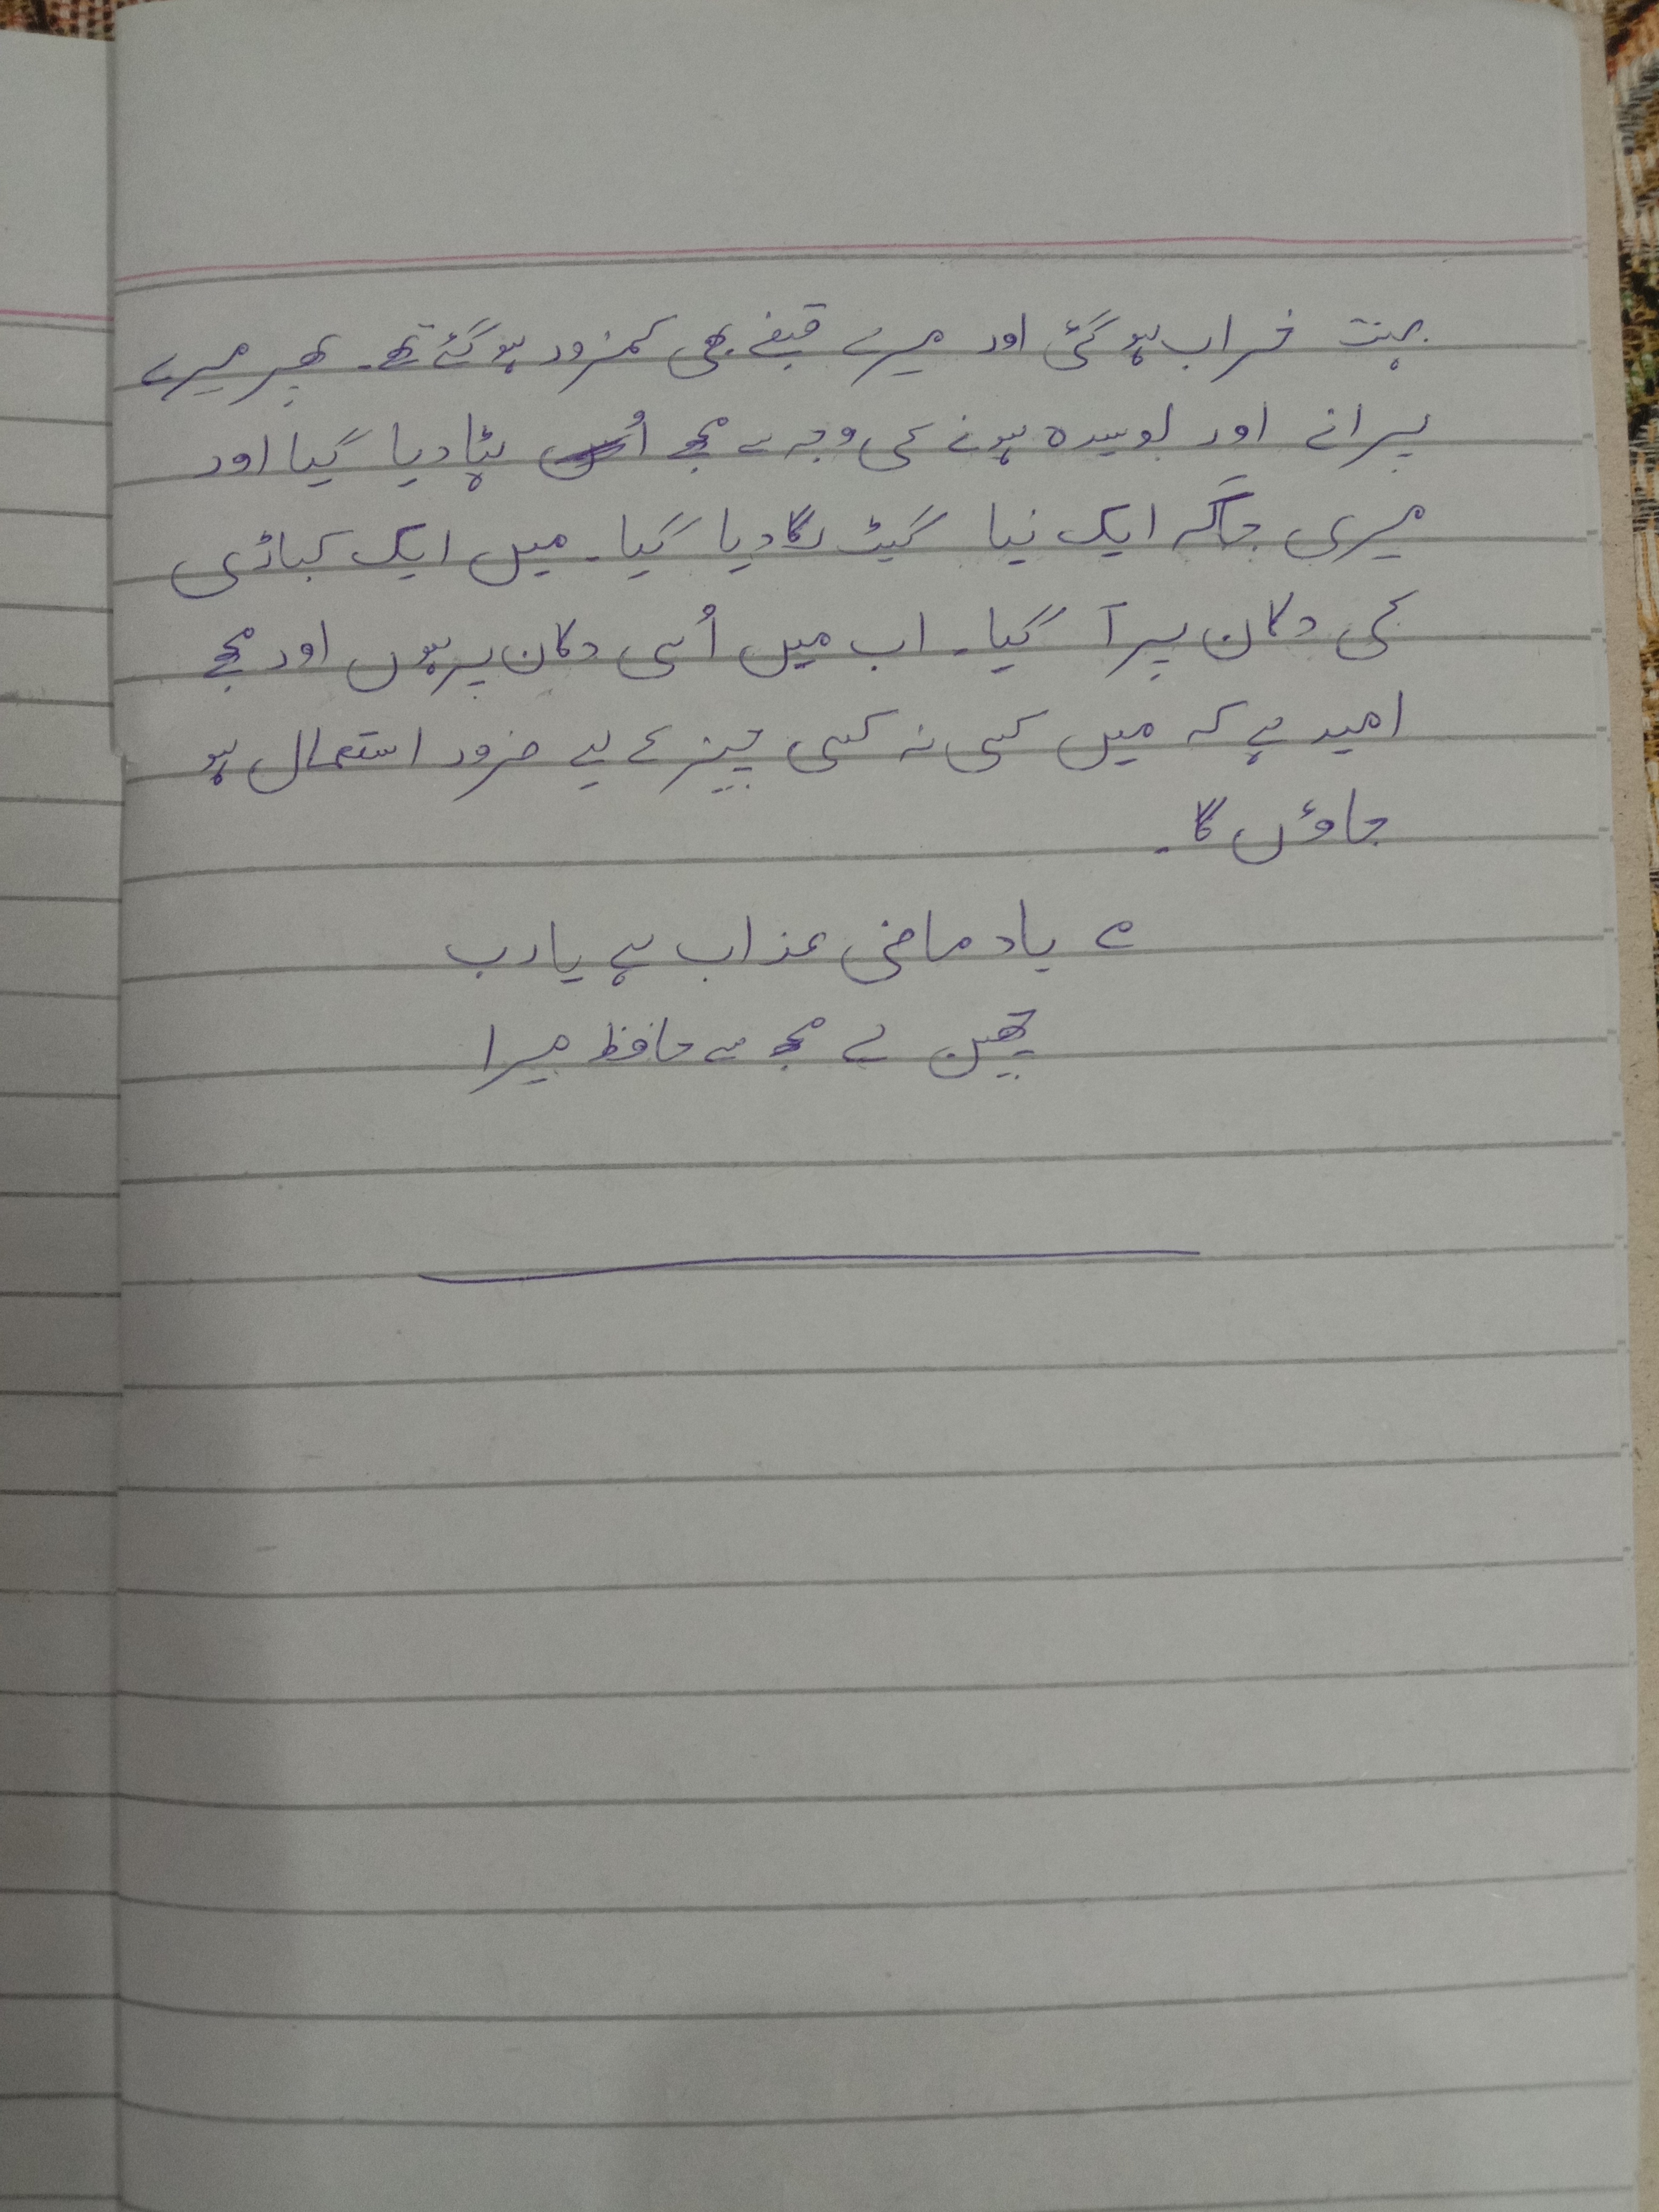 بہت خراب ہو گئی اور میرے قبضے بھی کمزور ہو گئے تھے۔ پھر میرے
پرانے اور بوسیدہ ہونے کی وجہ سے مجھے ہٹا دیا گیا اور
میری جگہ ایک نیا گیٹ لگا دیا گیا۔ میں ایک کباڑی
کی دکان پر آ گیا۔ اب میں اُسی دکان پر ہوں اور مجھے
امید ہے کہ میں کسی نہ کسی چیز کے لیے ضرور استعمال ہو
جاؤں گا۔
؎ یاد ماضی عذاب ہے یارب
چھین لے مجھ سے حافظہ میرا